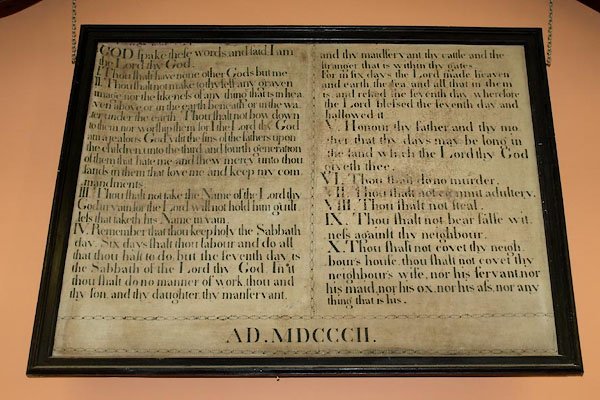 GOD spake these words and said I am
the Lord thy God.
I. Thou shalt have none other Gods but me
II. Thou shalt not make to thy self any graven
image nor the likeness of any thing that is in hea
ven above or in the earth beneath or in the wa
ter under the earth. Thou shalt not bow down
to them nor worship them for I the Lord thy God
am a jealous God & visit the sins of the fathers upon
the children unto the third and fourth generation
of them that hate me and shew mercy unto thou
sands in them that love me and keep my com
mandments.
III. Thou shalt not take the Name of the Lord thy
God in vain for the Lord will not hold him guilt
less that taketh his Name in vain.
IV. Remember that thou keep holy the Sabbath
day. Six days shalt thou labour and do all
that thou hast to do but the seventh day is
the Sabbath of the Lord thy God. In it
thou shalt do no manner of work thou and
thy son, and thy daughter, thy manservant,
and thy maidservant thy cattle and the
stranger that is within thy gates.
For in six days the Lord made heaven
and earth the sea and all that in them
is and rested the seventh day wherefore
the Lord blessed the seventh day and
hallowed it.
V. Honour thy father and thy mo
ther that thy days may be long in
the land which the Lord thy God
giveth thee.
VI. Thou shalt do no murder.
VII. Thou shalt not commit adultery.
VIII. Thou shalt not steal.
IX. Thou shalt not bear false wit
ness against thy neighbour.
X. Thou shalt not covet thy neigh
bour's house, thou shalt not covet thy
neighbour's wife, nor his servant, nor
his maid, nor his ox, nor his ass, nor any
thing that is his.
AD. MDCCCII.